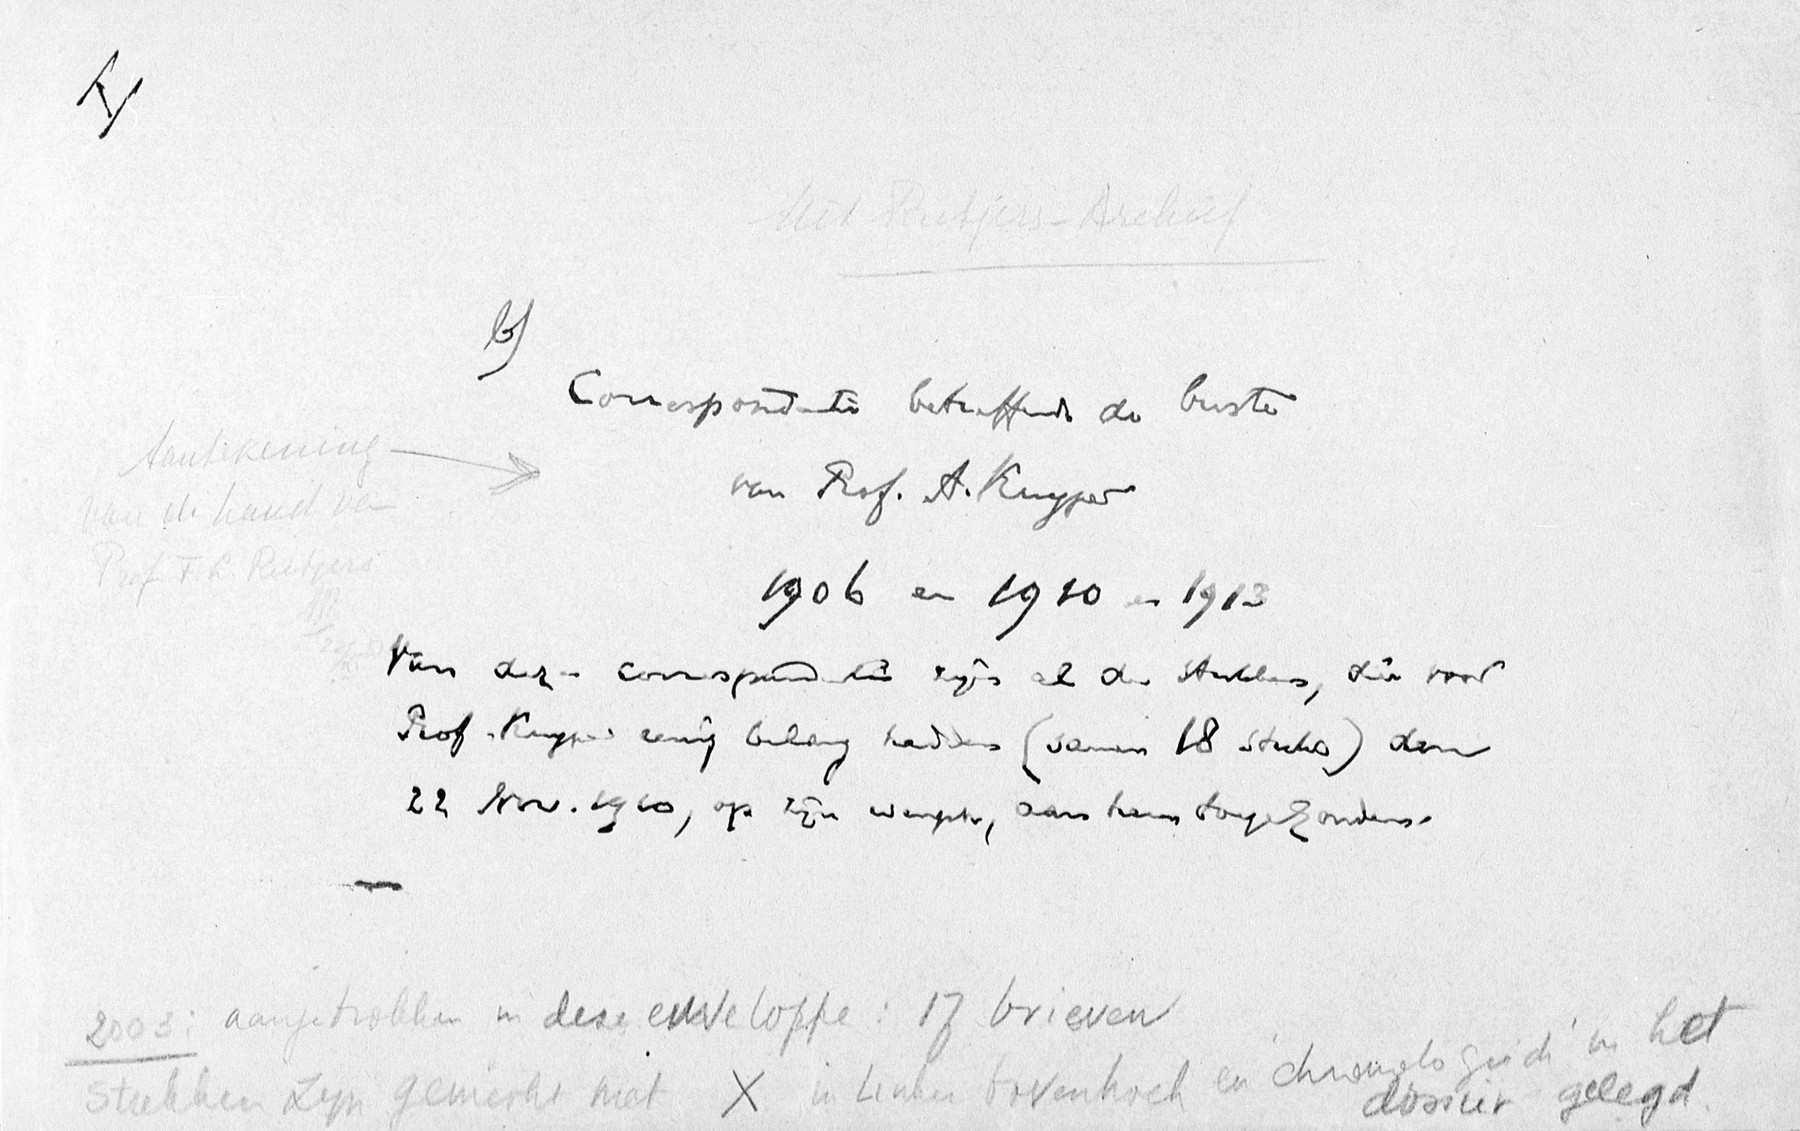 Uit Rutgers-Archief
b)
Correspondentie betreffende de buste
van Prof. A. Kuyper
1906 en 1910 en 1913
Aantekening
van de hand van
Prof. F. L. Rutgers
Van deze correspondentie zijn al de stukken, die voor
Prof. Kuyper eenig belang hadden (samen 18 stuks) dem
22 Nov. 1910, op zijn wensch, aan hem toegezonden.
2003: aangetrokken in deze enveloppe: 17 brieven
stukken zijn gemerkt met X in linker bovenhoek en 'chronologisch' in het
dossier gelegd.